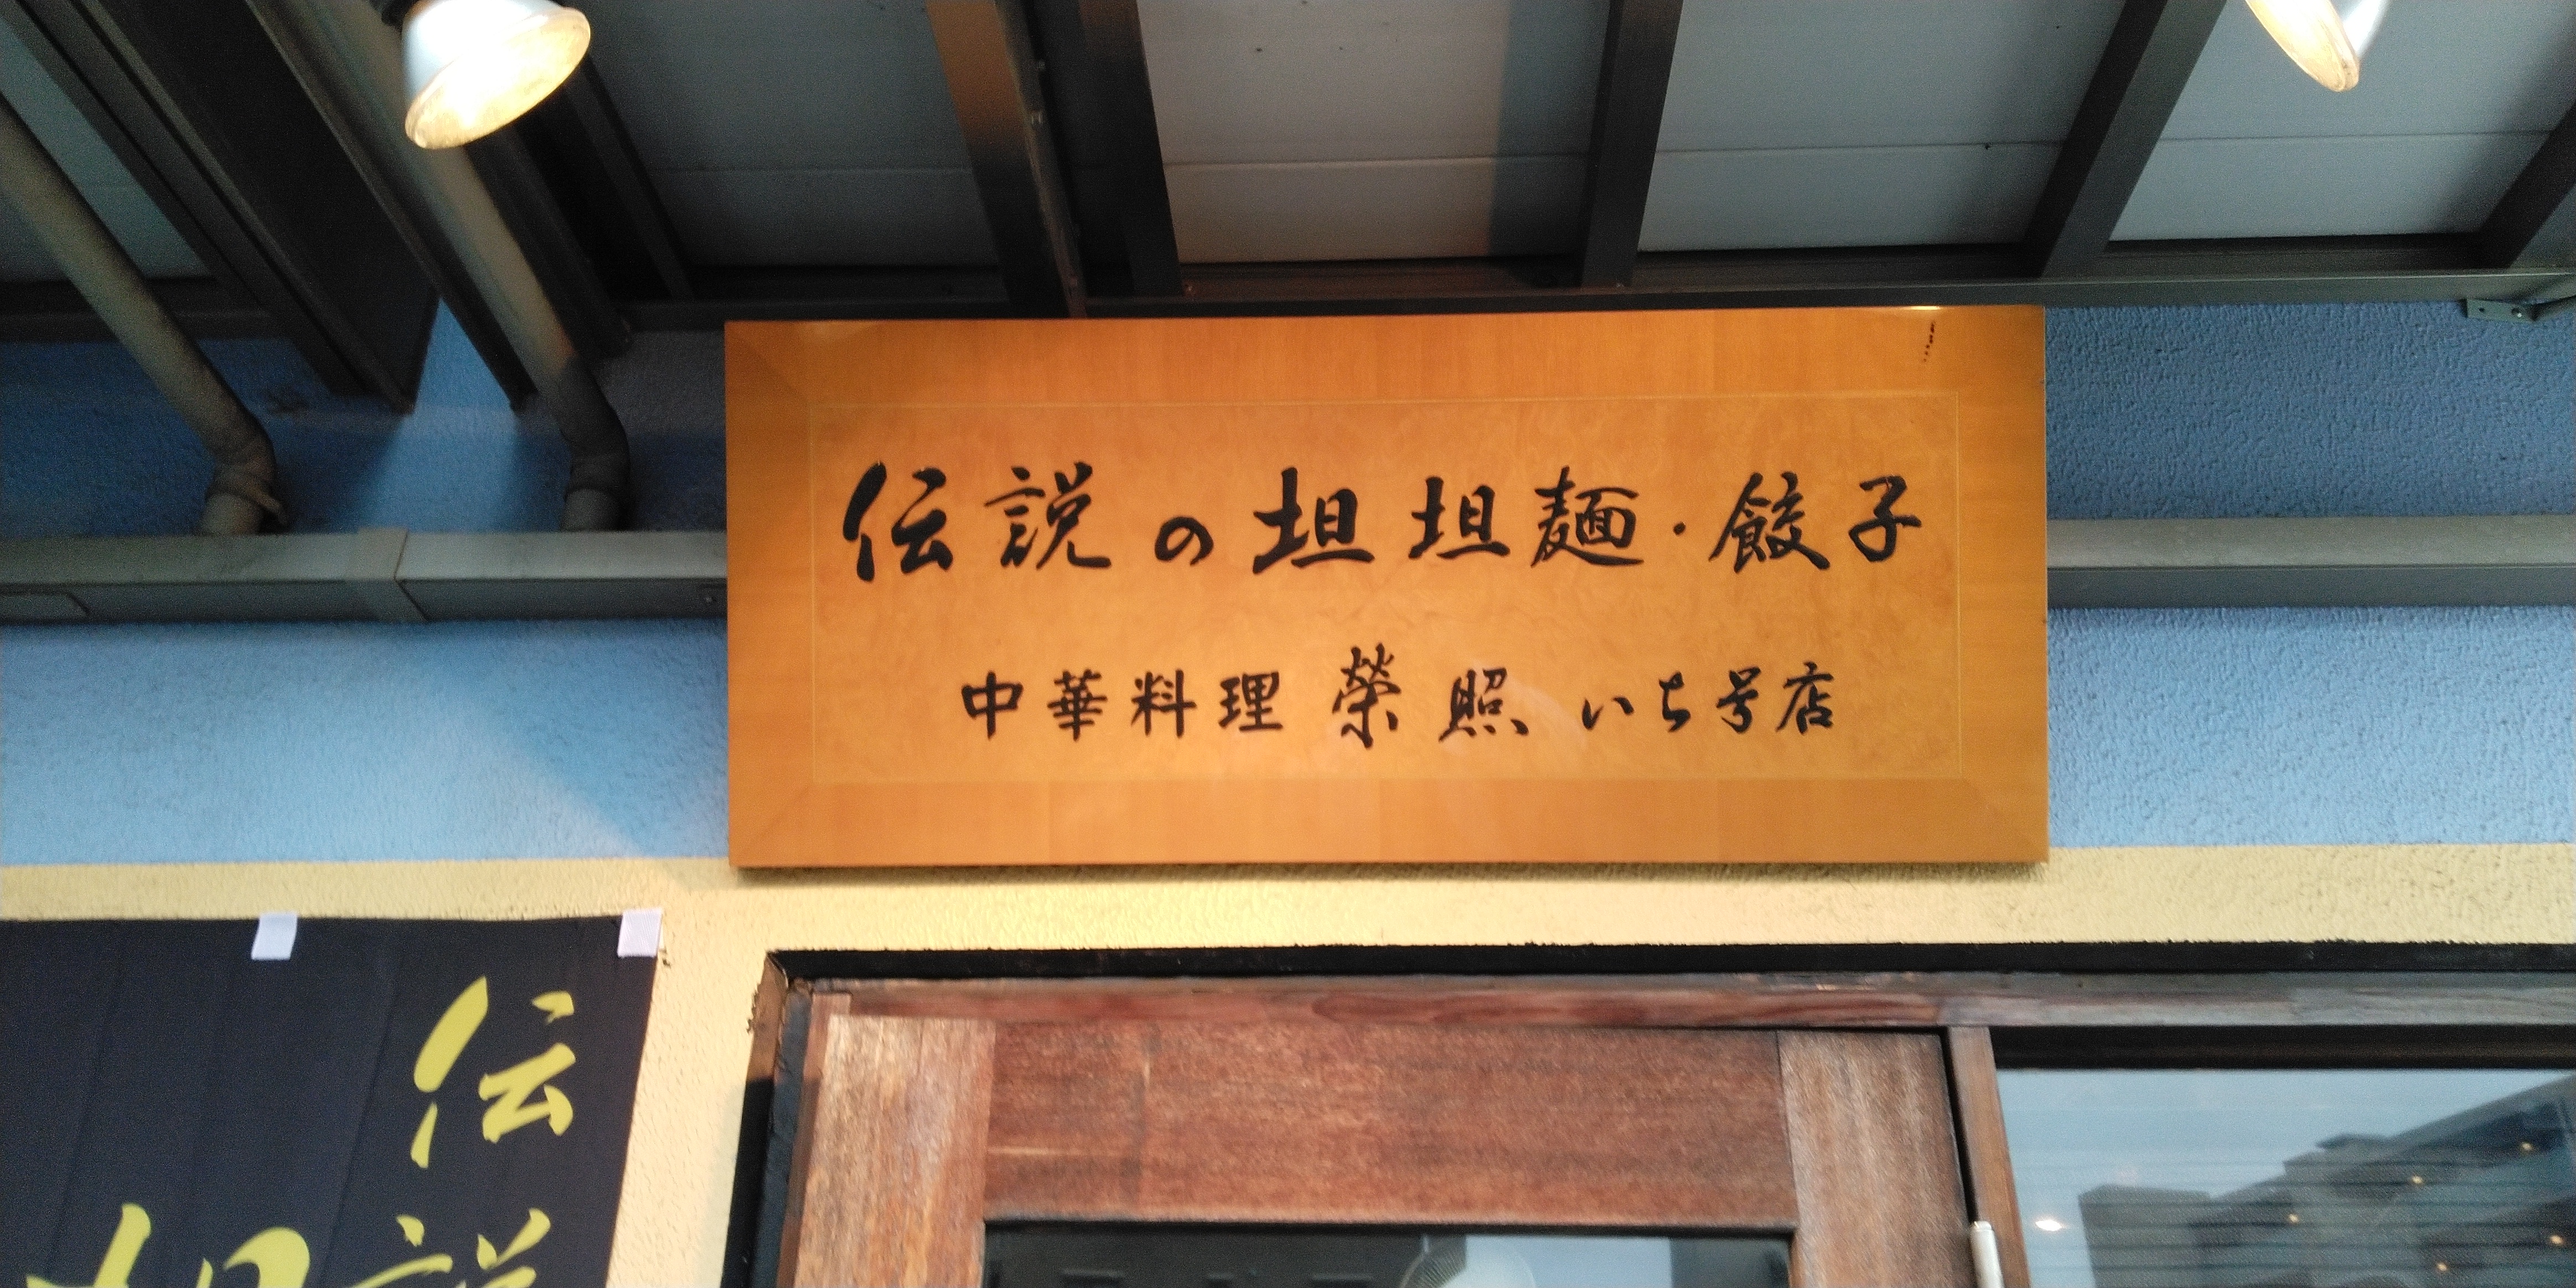 伝説の坦坦麺・餃子
中華料理 榮照 いち号店
伝説
坦